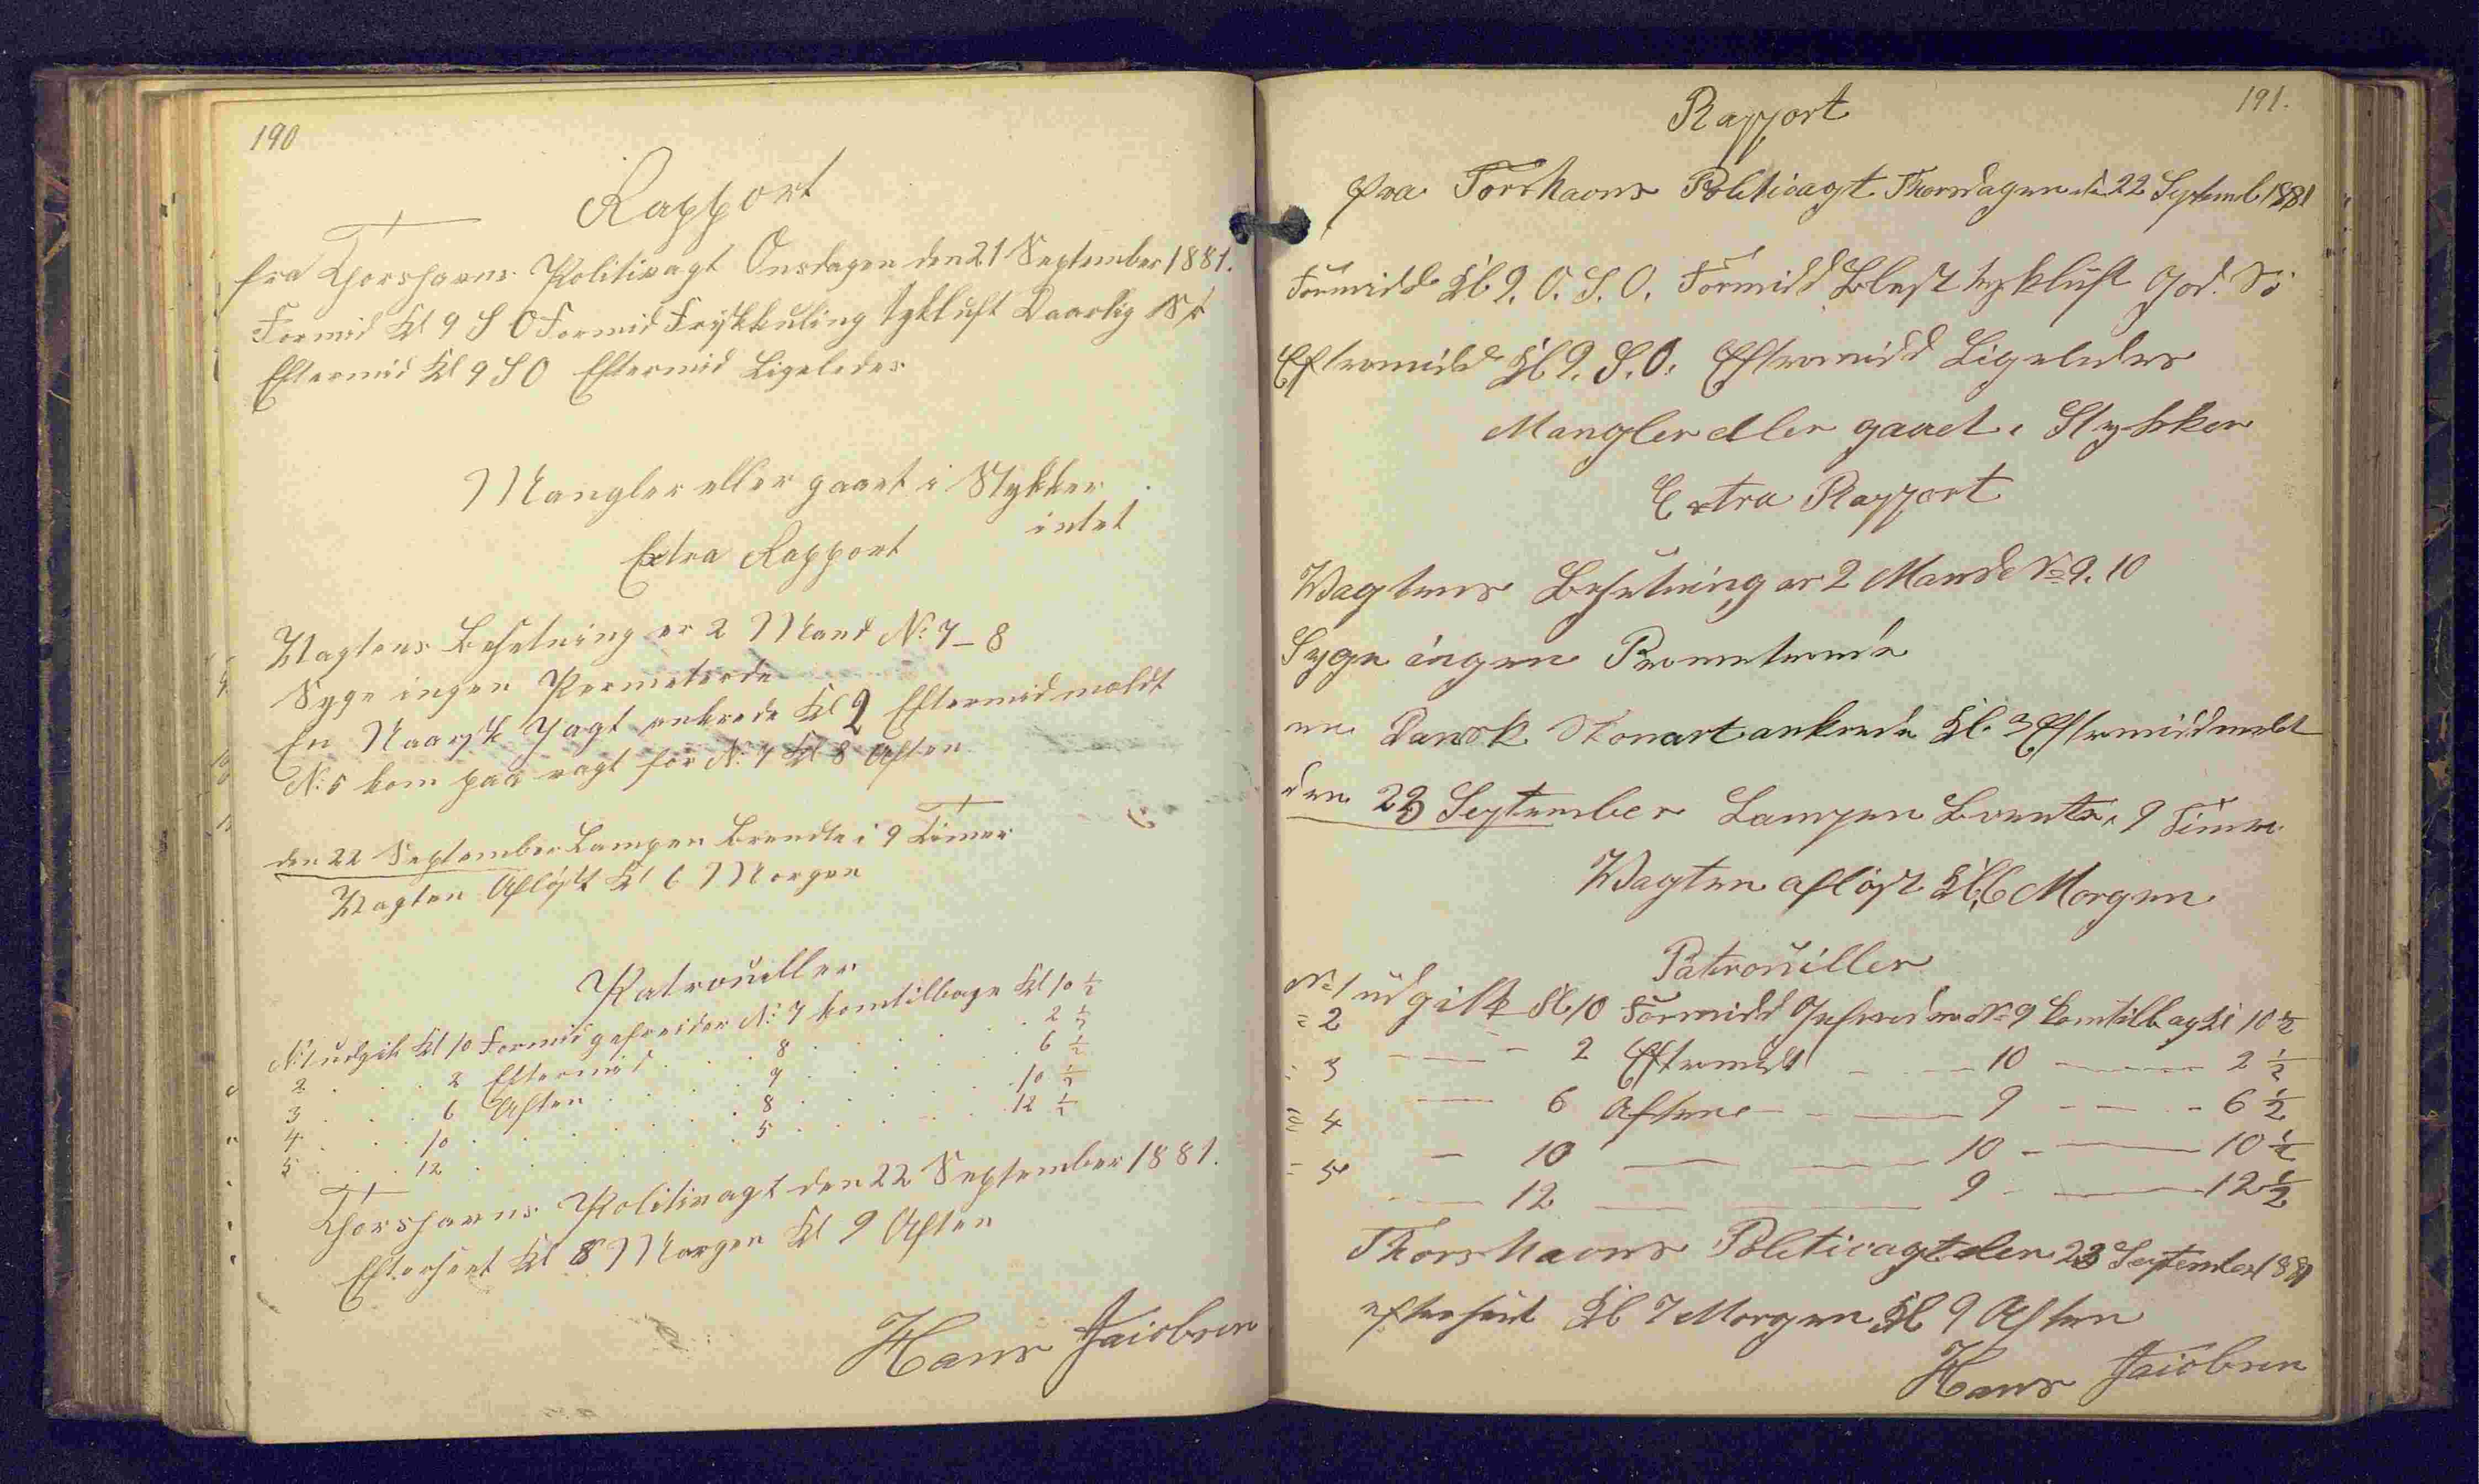 190
Rapport
fra Thorshavns Politivagt Onsdagen den 21 September 1881.
Formid Kl 9 S O Formid Friskkuling tykluft Daarlig Sø
Eftermid Kl 9 S O Eftermid Ligeledes
Mangler eller gaaet i Stykker
intet
Extra Rapport
Vagtens Besetning er 2 Mand No 7 - 8
Syge ingen Permeterede
En Naarsk Jagt ankrede Kl 2 Eftermid meldt
No 5 kom paa vagt for No 7 Kl 8 Aften
den 22 September Lampen Brendte i 9 Timer
Vagten Afløst Kl 6 Morgen
Patrouiller
No 1 udgik Kl 10 Formid gefreider No 7 kom tilbage Kl 10 ½
2 . . . 2 Eftermid . . . 8 . . . 2 ½
3 . . . 6 Aften . . . 7 . . . 6 ½
4 . . . 10 . . . 8 . . . 10 ½
5 . . . 12 . . . 5 . . . 12 ½
Thorshavns Politivagt den 22 September 1881.
Efterseet Kl 8 Morgen Kl 9 Aften
Hans Jaicobsen
191.
Rapport
fra Torshavns Politivagt Thorsdagen de 22 Septemb 1881
Formidd Kl 9. O. S. O. Formidd Blest tykluft God. Sö
Eftermidd Kl 9. S. O. Eftermidd Ligeledes
Mangler eller gaaet i Stykker
Extra Rapport
Wagtens Besetning er 2 Mand No 9. 10
Syge ingen Permeterede
en Dansk Skonart ankrede Kl 3 Eftermidd meldt
den 23 September Lampen Brente i 9 Timer
Wagten afløst Kl. 6 Morgen
Patrouiller
No 1 udgik Kl 10 Formidd Gefreder No 9 kom tilbag Kl 10 ½
= 2 — — - 2 Eftermidd — — 10 — — 2 ½
= 3 — — 6 Aften — — 9 — — - 6 ½
= 4 — 10 — — 10 - — 10 ½
= 5 — 12 — — 9 - — 12 ½
Thorshavns Politivagt den 23 September 1881
efterseet Kl 7 Morgen Kl 9 Aften
Hans Jaicobsen